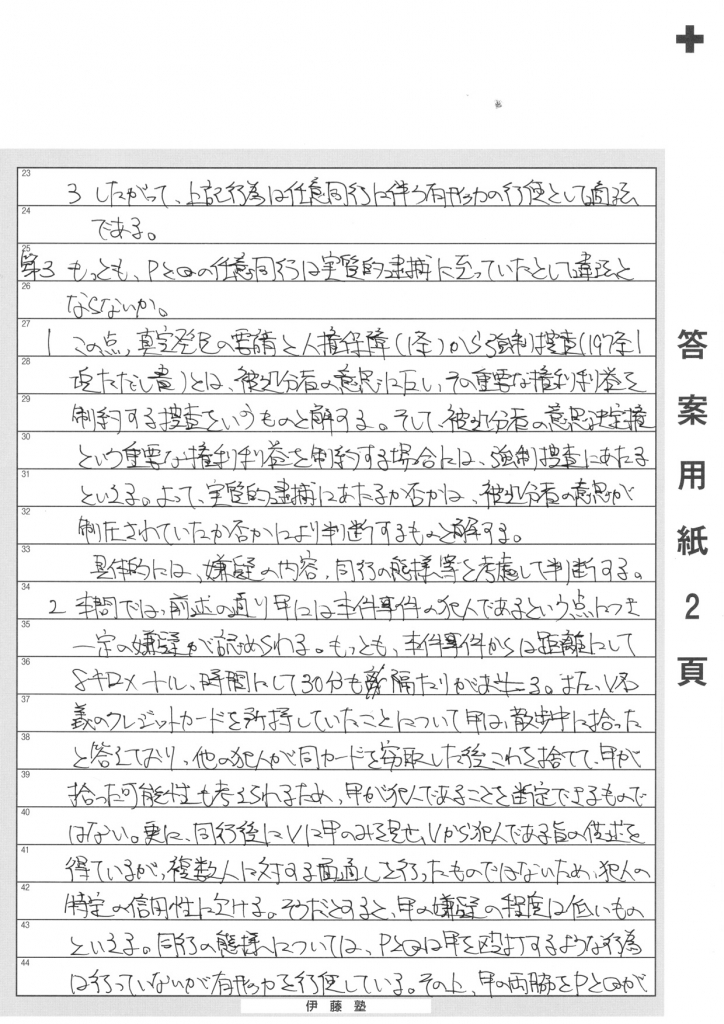 23
3 したがって、上記行為は任意同行に伴う有形力の行使として適法
24
である。
25
第3 もっとも、PとQの任意同行は実質的逮捕に至っていたとして違法と
26
ならないか。
27
1 この点、真実発見の要請と人権保障(1条)から強制捜査(197条1
28
項ただし書)とは、被処分者の意思に反し、その重要な権利利益を
29
制約する捜査というものと解する。そして、被処分者の意思決定権
30
という重要な権利利益を制約する場合には、強制捜査にあたる
31
といえる。よって、実質的逮捕にあたるか否かは、被処分者の意思が
32
制圧されていたか否かにより判断するものと解する。
33
具体的には、嫌疑の内容、同行の態様等を考慮して判断する。
34
2 本問では、前述の通り甲には本件事件の犯人であるという点につき
35
一定の嫌疑が認められる。もっとも、本件事件からは距離にして
36
8キロメートル、時間にして30分も隔たりがある。また、V名
37
義のクレジットカードを所持していたことについて甲は、散歩中に拾った
38
と答えており、他の犯人が同カードを窃取した後これを捨てて、甲が
39
拾った可能性も考えられるため、甲が犯人であることを断定できるもので
40
はない。更に、同行後にVに甲のみを見せ、Vから犯人である旨の供述を
41
得ているが、複数人に対する面通しを行ったものではないため、犯人の
42
特定の信用性に欠ける。そうだとすると、甲の嫌疑の程度は低いもの
43
といえる。同行の態様については、PとQは甲を殴打するような行為
44
は行っていないが有形力を行使している。その上、甲の両脇をPとQが
伊藤塾
答案用紙2頁